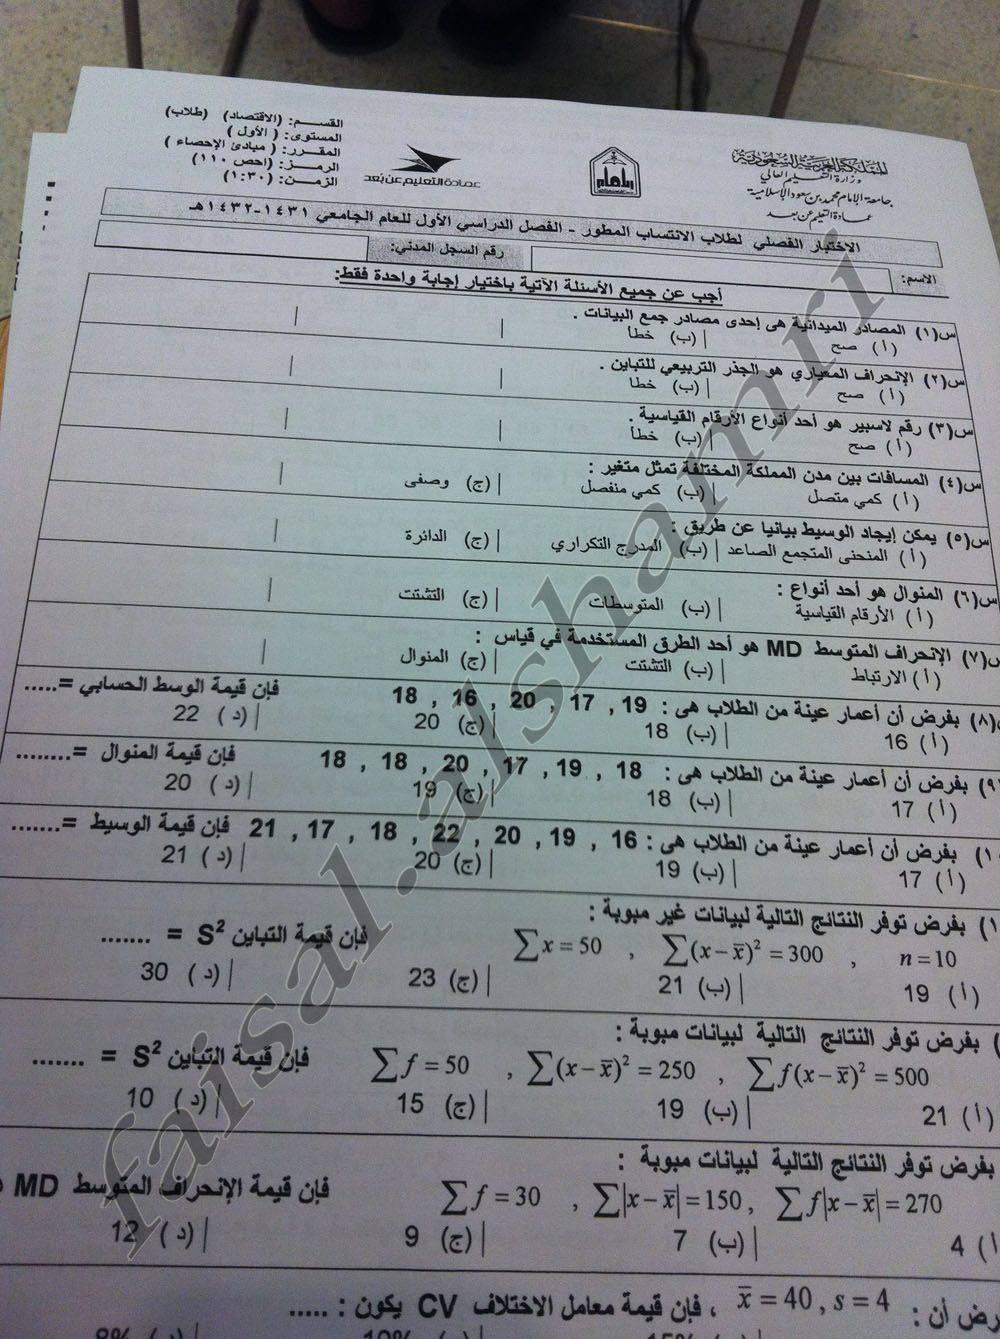 المملكة العربية السعودية
وزارة التعليم العالي
جامعة الإمام محمد بن سعود الإسلامية
عمادة التعليم عن بعد
عمادة التعليم عن بعد
القسم: (الاقتصاد) (طلاب)
المستوى: (الأول)
المقرر: (مبادئ الإحصاء)
الرمز: (احص ١١٠)
الزمن: (١:٣٠)
الاختبار الفصلي لطلاب الانتساب المطور - الفصل الدراسي الأول للعام الجامعي ١٤٣١-١٤٣٢هـ
الاسم: رقم السجل المدني:
أجب عن جميع الأسئلة الآتية باختيار إجابة واحدة فقط:
س(١) المصادر الميدانية هى إحدى مصادر جمع البيانات .
(أ) صح (ب) خطأ
س(٢) الإنحراف المعياري هو الجذر التربيعي للتباين .
(أ) صح (ب) خطا
س(٣) رقم لاسبير هو أحد أنواع الأرقام القياسية .
(أ) صح (ب) خطأ
س(٤) المسافات بين مدن المملكة المختلفة تمثل متغير :
(أ) كمي متصل (ب) كمي منفصل (ج) وصفى
س(٥) يمكن إيجاد الوسيط بيانيا عن طريق :
(أ) المنحنى المتجمع الصاعد (ب) المدرج التكراري (ج) الدائرة
س(٦) المنوال هو أحد أنواع :
(أ) الأرقام القياسية (ب) المتوسطات (ج) التشتت
س(٧) الإنحراف المتوسط MD هو أحد الطرق المستخدمة في قياس :
(أ) الارتباط (ب) التشتت (ج) المنوال
(٨) بفرض أن أعمار عينة من الطلاب هى : 19 , 17 , 20 , 16 , 18 فإن قيمة الوسط الحسابي =.....
(أ) 16 (ب) 18 (ج) 20 (د) 22
٩) بفرض أن أعمار عينة من الطلاب هى : 18 , 19 , 17 , 20 , 18 , 18 فإن قيمة المنوال =........
(أ) 17 (ب) 18 (ج) 19 (د) 20
) بفرض أن أعمار عينة من الطلاب هى : 16 , 19 , 20 , 22 , 18 , 17 , 21 فإن قيمة الوسيط =.......
(أ) 17 (ب) 19 (ج) 20 (د) 21
) بفرض توفر النتائج التالية لبيانات غير مبوبة :
n = 10 , ∑(x − x̄)² = 300 , ∑x = 50 فإن قيمة التباين S² = .......
(أ) 19 (ب) 21 (ج) 23 (د) 30
) بفرض توفر النتائج التالية لبيانات مبوبة :
∑f(x − x̄)² = 500 , ∑(x − x̄)² = 250 , ∑f = 50 فإن قيمة التباين S² = .......
(أ) 21 (ب) 19 (ج) 15 (د) 10
بفرض توفر النتائج التالية لبيانات مبوبة :
∑f|x − x̄| = 270 , ∑|x − x̄| = 150 , ∑f = 30 فإن قيمة الإنحراف المتوسط MD
أ) 4 (ب) 7 (ج) 9 (د) 12
أن : x̄ = 40 , s = 4 ، فإن قيمة معامل الاختلاف CV يكون : .....
faisal.alshamri